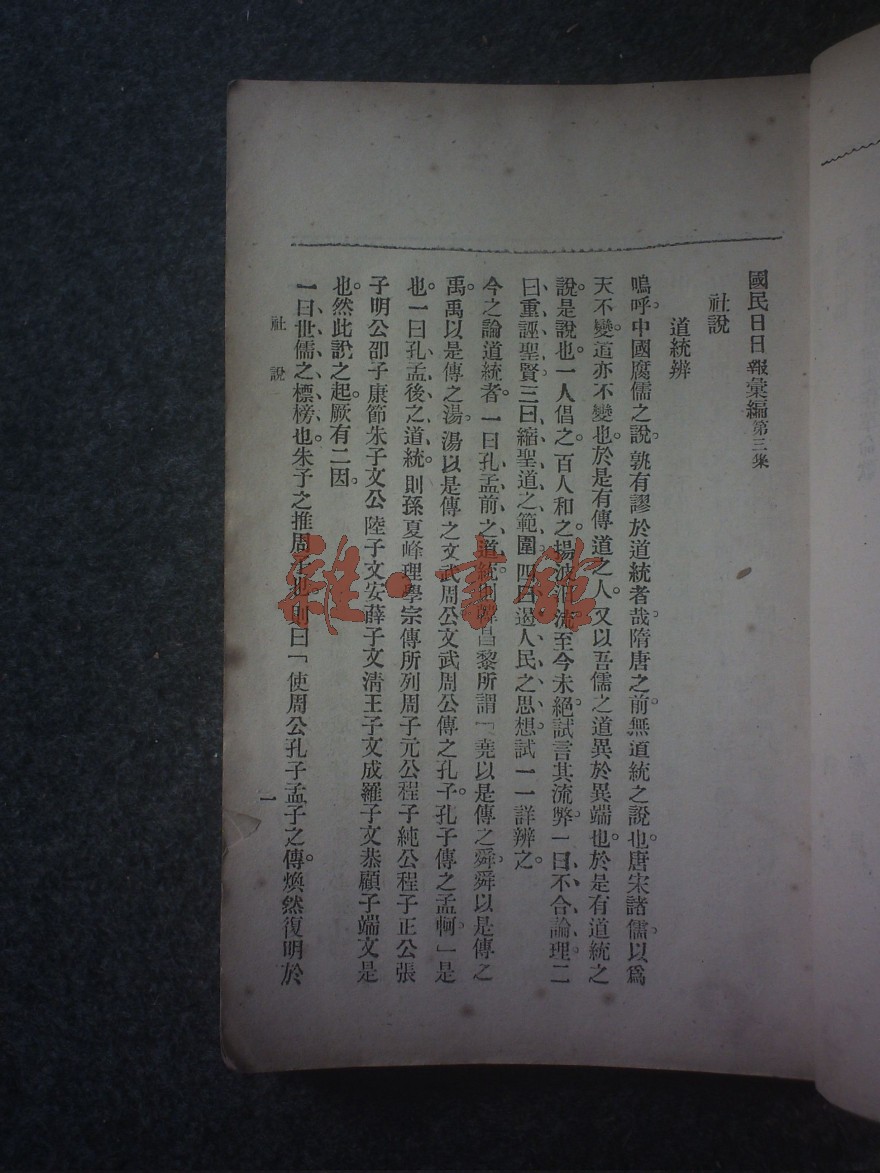 國民日日報彙編第三集
社說
道統辨
嗚呼。中國腐儒之說。孰有謬於道統者哉。隋唐之前。無道統之說也。唐宋諸儒。以爲
天不變。道亦不變也。於是有傳道之人。又以吾儒之道異於異端也。於是有道統之
說。是說也。一人倡之。百人和之。揚波流至今未絕。試言其流弊。一曰不合論理。二
曰重誣聖賢。三曰縮聖道之範圍。四曰遏人民之思想。試一一詳辨之。
今之論道統者。一曰孔孟前之道統。則韓昌黎所謂「堯以是傳之舜。舜以是傳之
禹。禹以是傳之湯。湯以是傳之文武周公。文武周公傳之孔子。孔子傳之孟軻。」是
也。一曰孔孟後之道統。則孫夏峰理學宗傳所列周子元公程子純公程子正公張
子明公邵子康節朱子文公陸子文安薛子文淸王子文成羅子文恭顧子端文是
也。然此說之起。厥有二因。
一曰世儒之標榜也。朱子之推周子也。則曰「使周公孔子孟子之傳。煥然復明於
社說
一
雜·書館